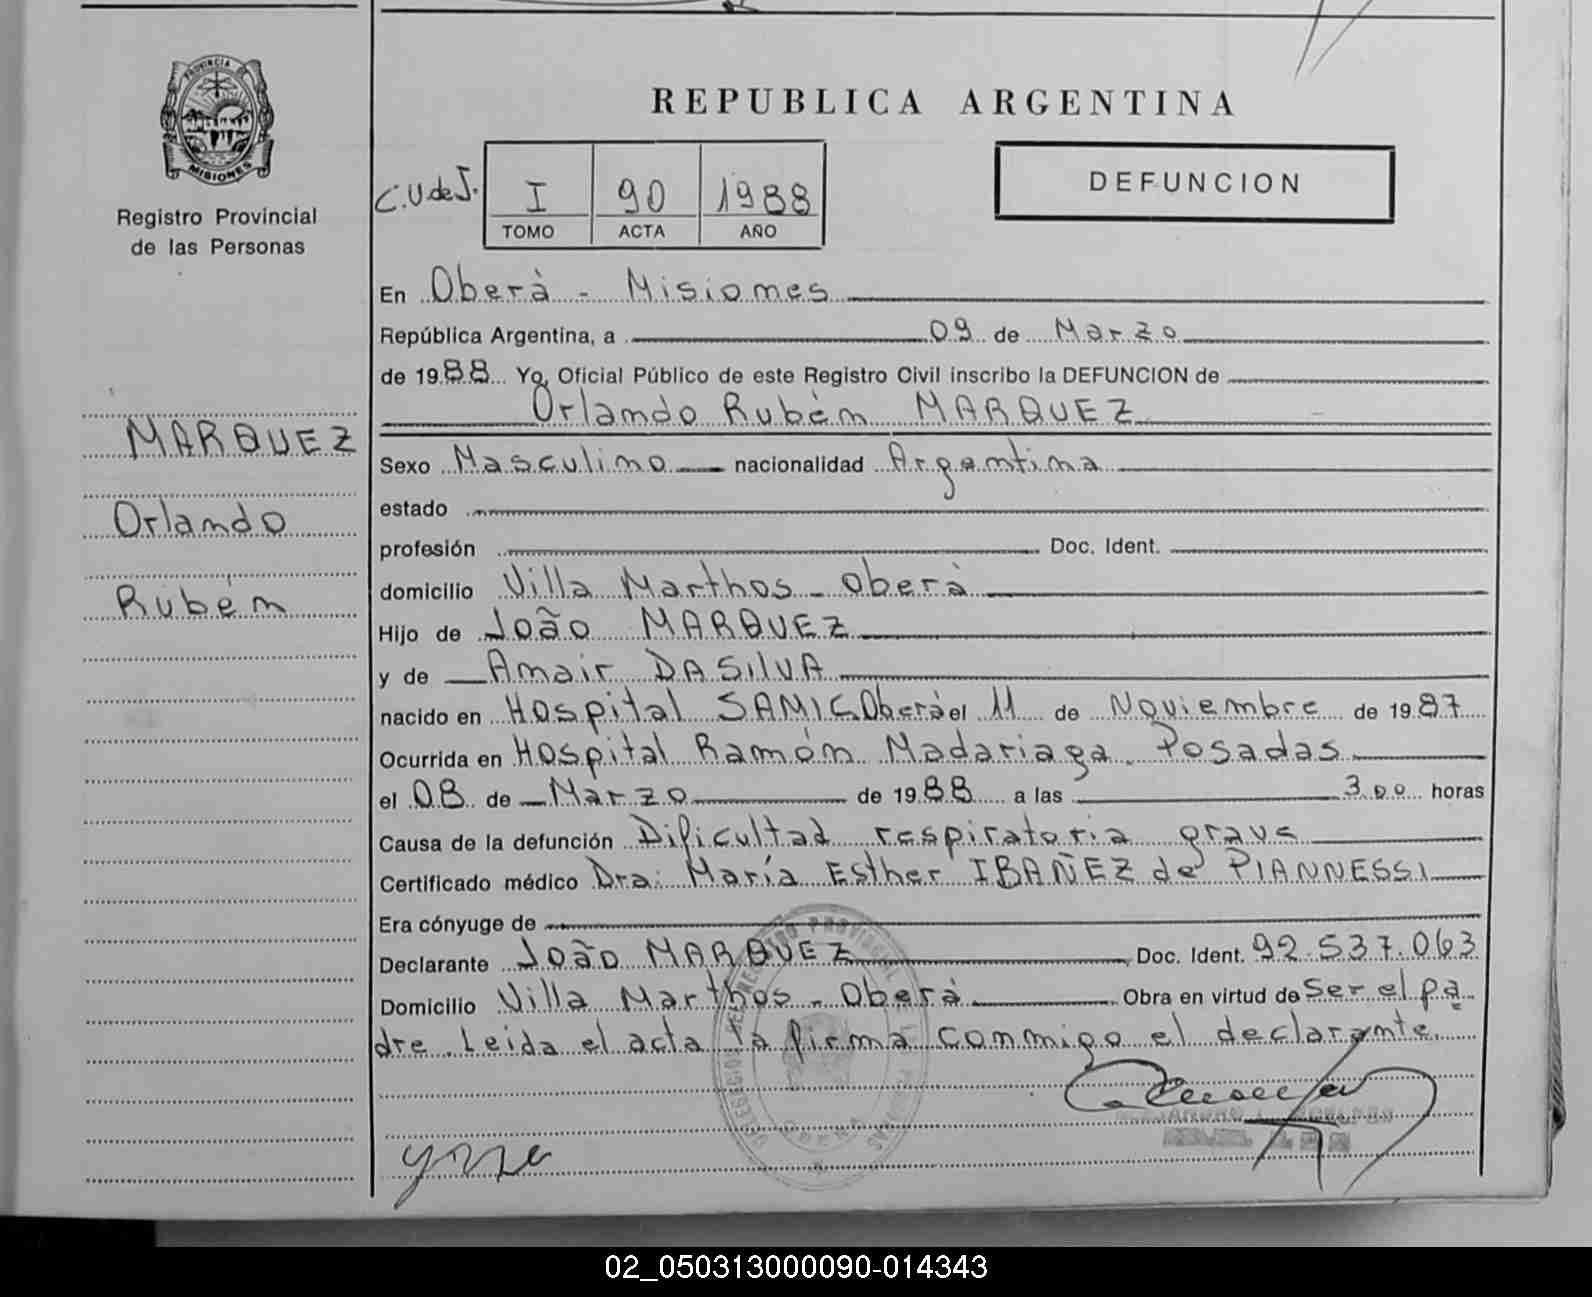 PROVINCIA DE
MISIONES
Registro Provincial
de las Personas
MARQUEZ
Orlando
Rubén
REPUBLICA ARGENTINA
C.U.de J. I 90 1988
TOMO ACTA AÑO
DEFUNCION
En Oberà - Misiones
República Argentina, a 09 de Marzo
de 1988 Yo, Oficial Público de este Registro Civil inscribo la DEFUNCION de
Orlando Rubén MARQUEZ
Sexo Masculino nacionalidad Argentina
estado
profesión Doc. Ident.
domicilio Villa Marthos - Oberà
Hijo de João MARQUEZ
y de Amair DASILVA
nacido en Hospital SAMIC Oberà el 11 de Noviembre de 1987
Ocurrida en Hospital Ramón Madariaga. Posadas
el 08 de Marzo de 1988 a las 3.00 horas
Causa de la defunción Dificultad respiratoria grave
Certificado médico Dra: María Esther IBAÑEZ de PIANNESSI
Era cónyuge de
Declarante João MARQUEZ Doc. Ident. 92.537.063
Domicilio Villa Marthos - Oberà Obra en virtud de Ser el pa
dre. Leida el acta la firma conmigo el declarante.
02_050313000090-014343